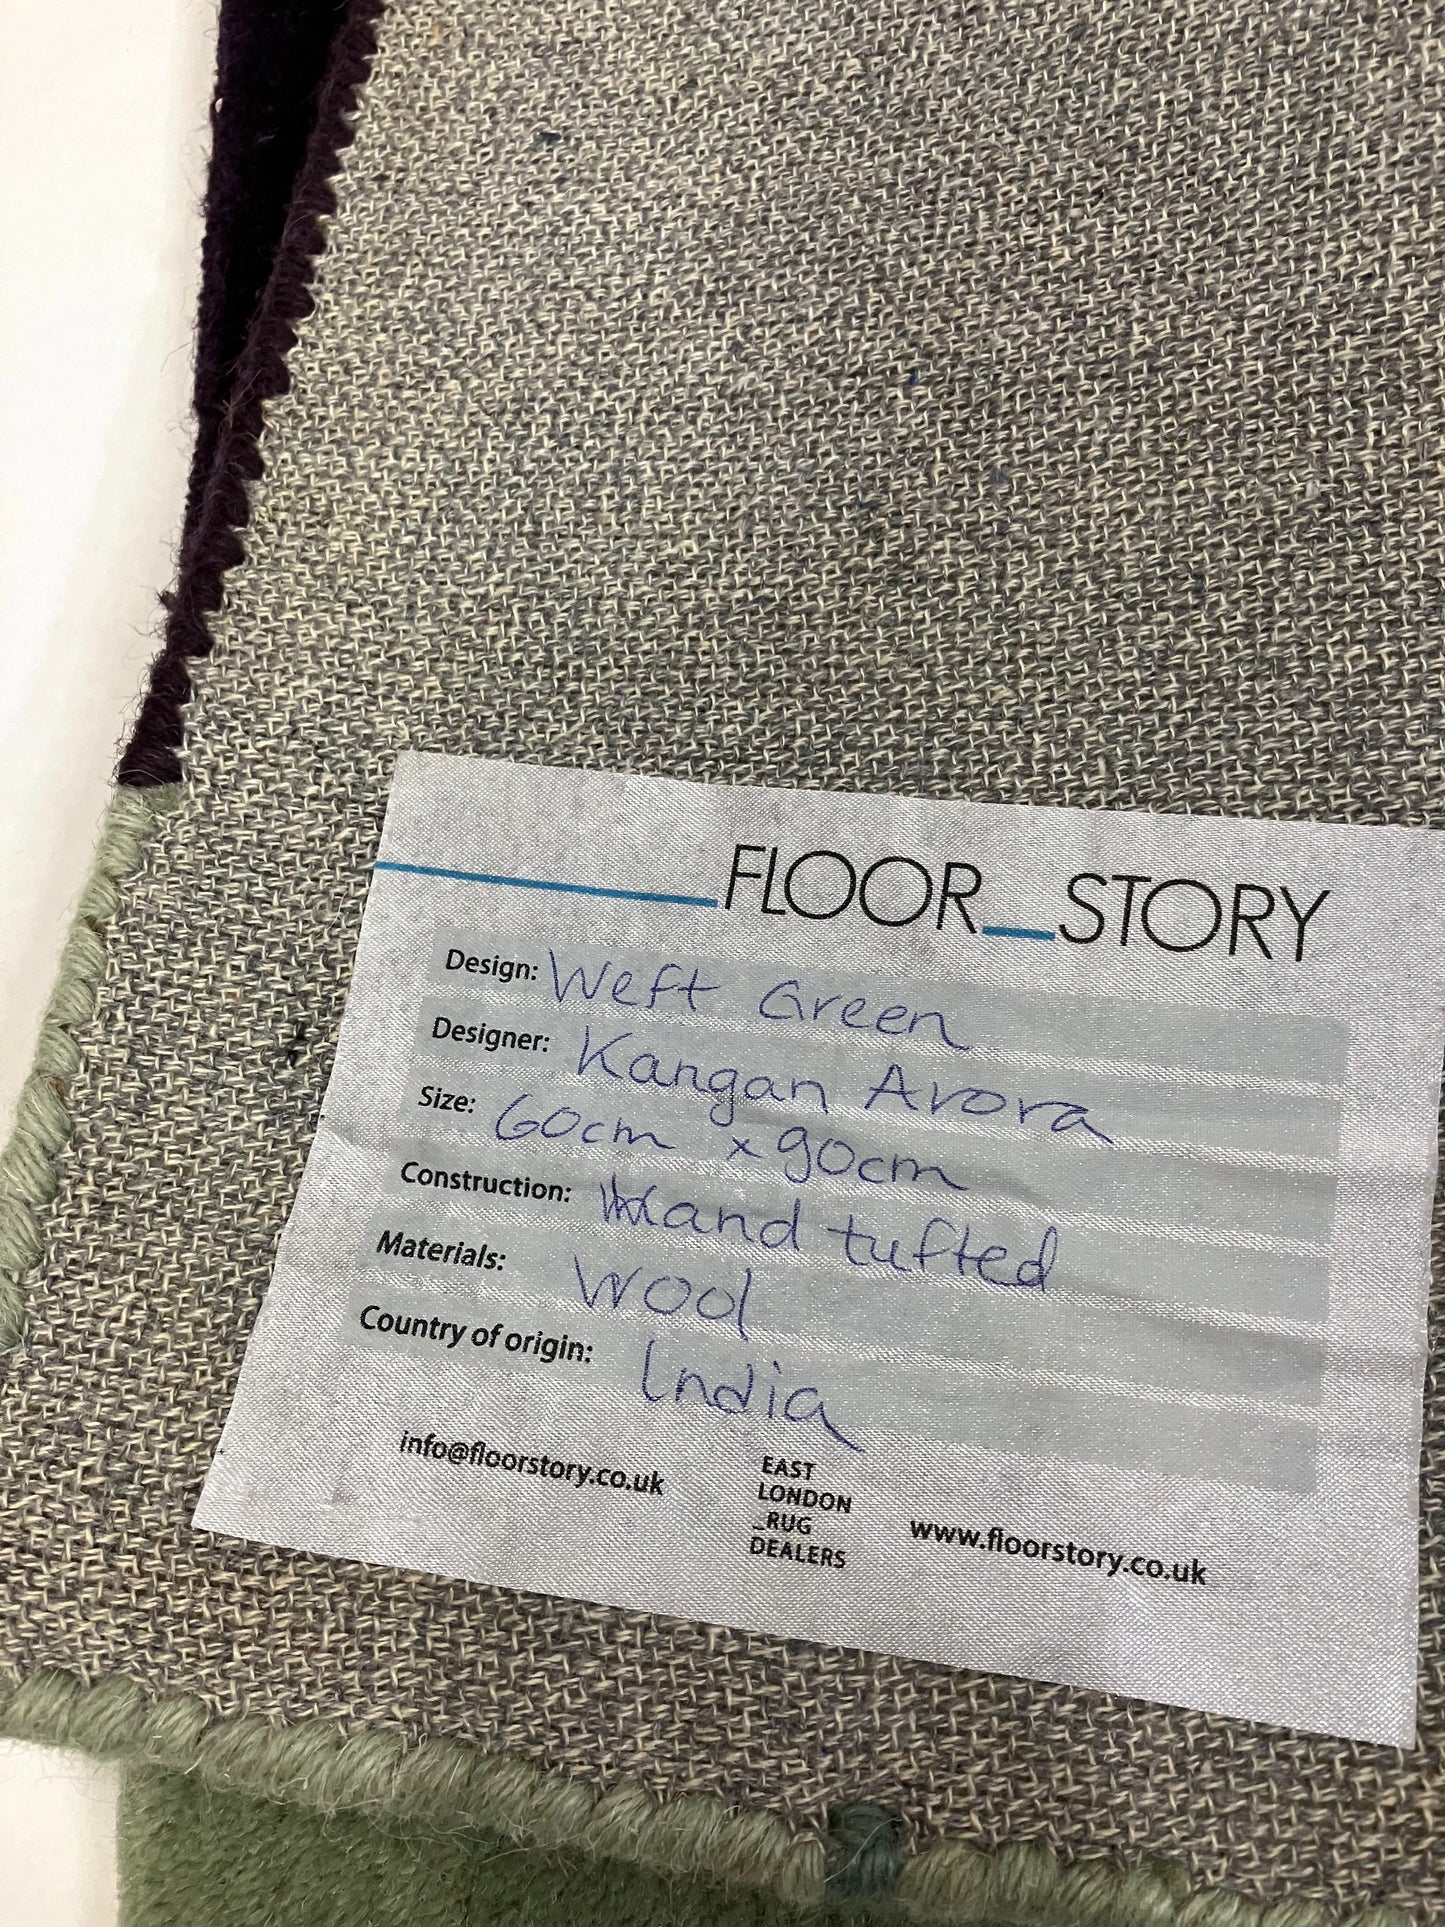 FLOOR_STORY
Design: Weft Green
Designer: Kangan Arora
Size: 60cm x 90cm
Construction: Hand tufted
Materials: Wool
Country of origin: India
info@floorstory.co.uk
EAST
LONDON
_RUG
DEALERS
www.floorstory.co.uk